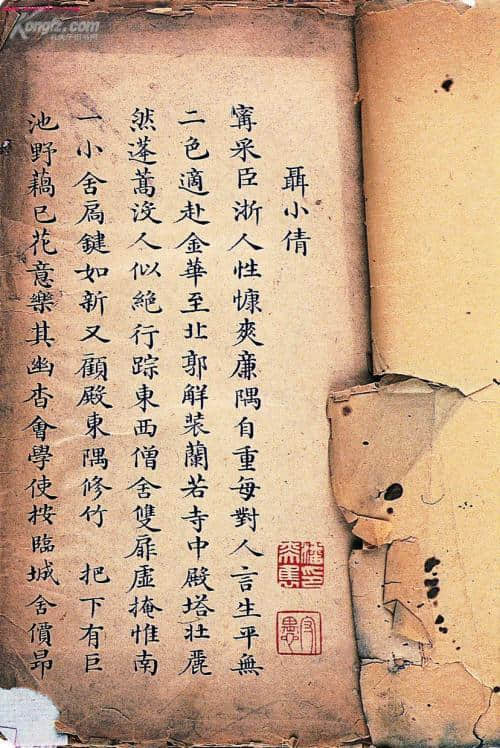 Kongfz.com
孔夫子旧书网
聶小倩
寗采臣浙人性慷爽廉隅自重每對人言生平無
二色適赴金華至北郭解裝蘭若寺中殿塔壯麗
然蓬蒿沒人似絶行踪東西僧舍雙扉虛掩惟南
一小舍扃鍵如新又顧殿東隅修竹 把下有巨
池野藕已花意樂其幽杳會學使按臨城舍價昂